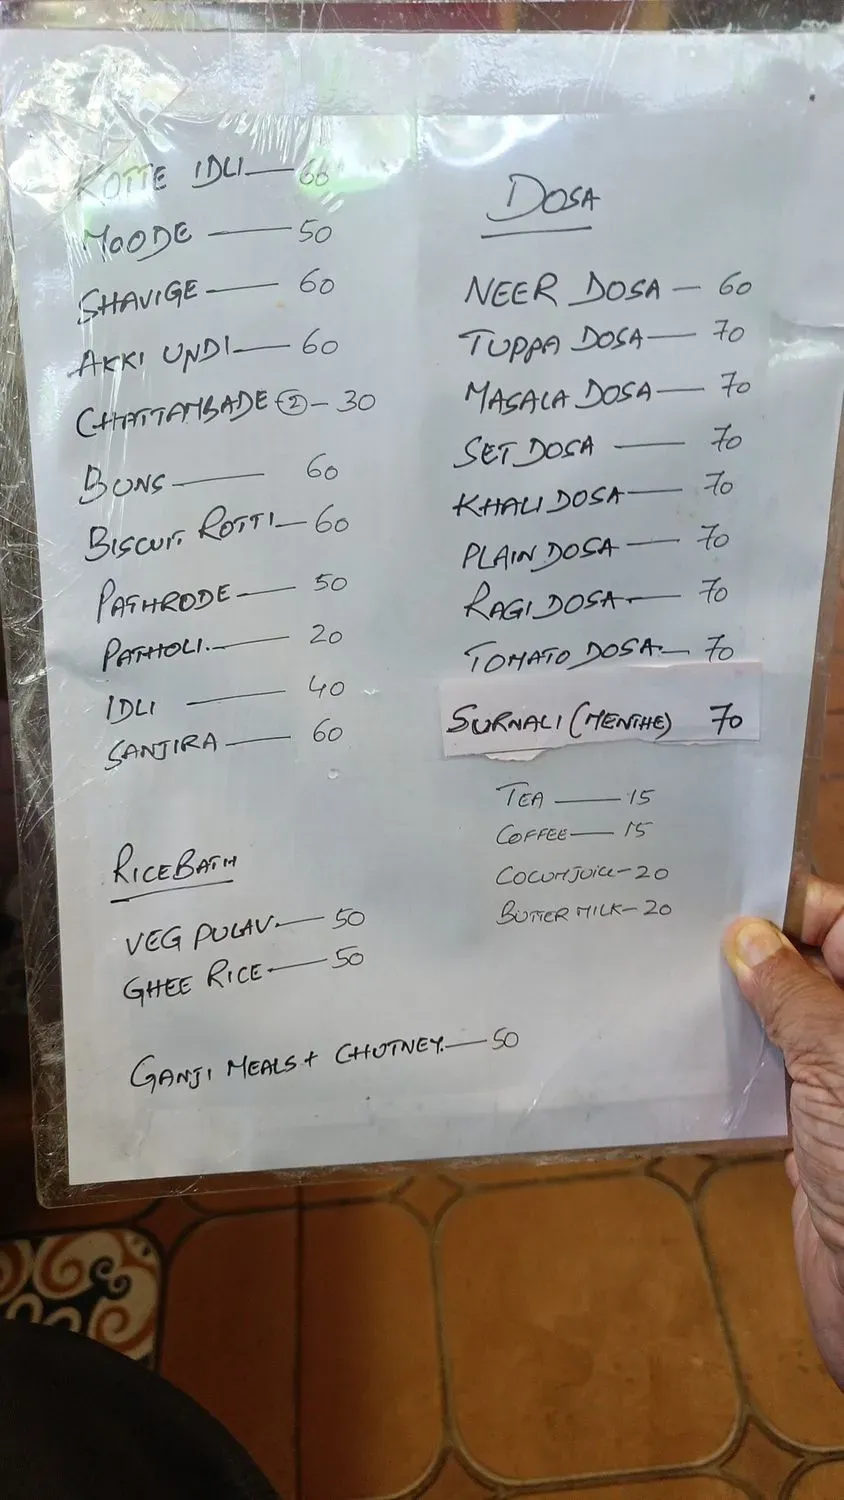 KOTTE IDLI — 60
MOODE — 50
SHAVIGE — 60
AKKI UNDI — 60
CHATTAMBADE (2) - 30
BUNS — 60
BISCUIT ROTTI — 60
PATHRODE — 50
PATHOLI. — 20
IDLI — 40
SANJIRA — 60
RICEBATH
VEG PULAV. — 50
GHEE RICE. — 50
GANJI MEALS + CHUTNEY. — 50
DOSA
NEER DOSA — 60
TUPPA DOSA — 70
MASALA DOSA — 70
SET DOSA — 70
KHALI DOSA — 70
PLAIN DOSA — 70
RAGI DOSA. — 70
TOMATO DOSA. — 70
SURNALI (MENTHE) 70
TEA — 15
COFFEE — 15
COCUM JUICE - 20
BUTTER MILK - 20